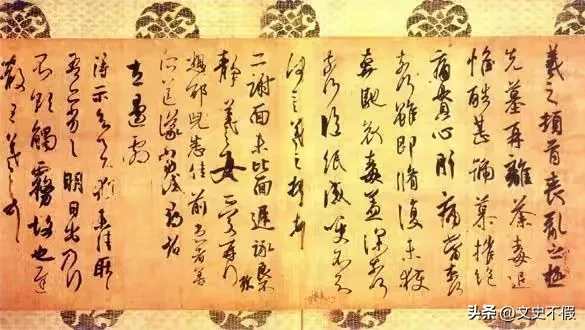 羲之頓首喪亂之極
先墓再離荼毒追
惟酷甚號慕摧絕
痛貫心肝痛當奈何
奈何雖即脩復未獲
奔馳哀毒益深奈何
奈何臨紙感哽不知
何言羲之頓首頓首
二謝面未比面遲詠良
不靜羲之女愛再拜
想邰兒悉佳前患者善
左邊劇
得示知足下猶未佳耿耿
吾亦劣劣明日出乃行
不欲觸霧故也遲
散王羲之頓首
头条 @文史不假